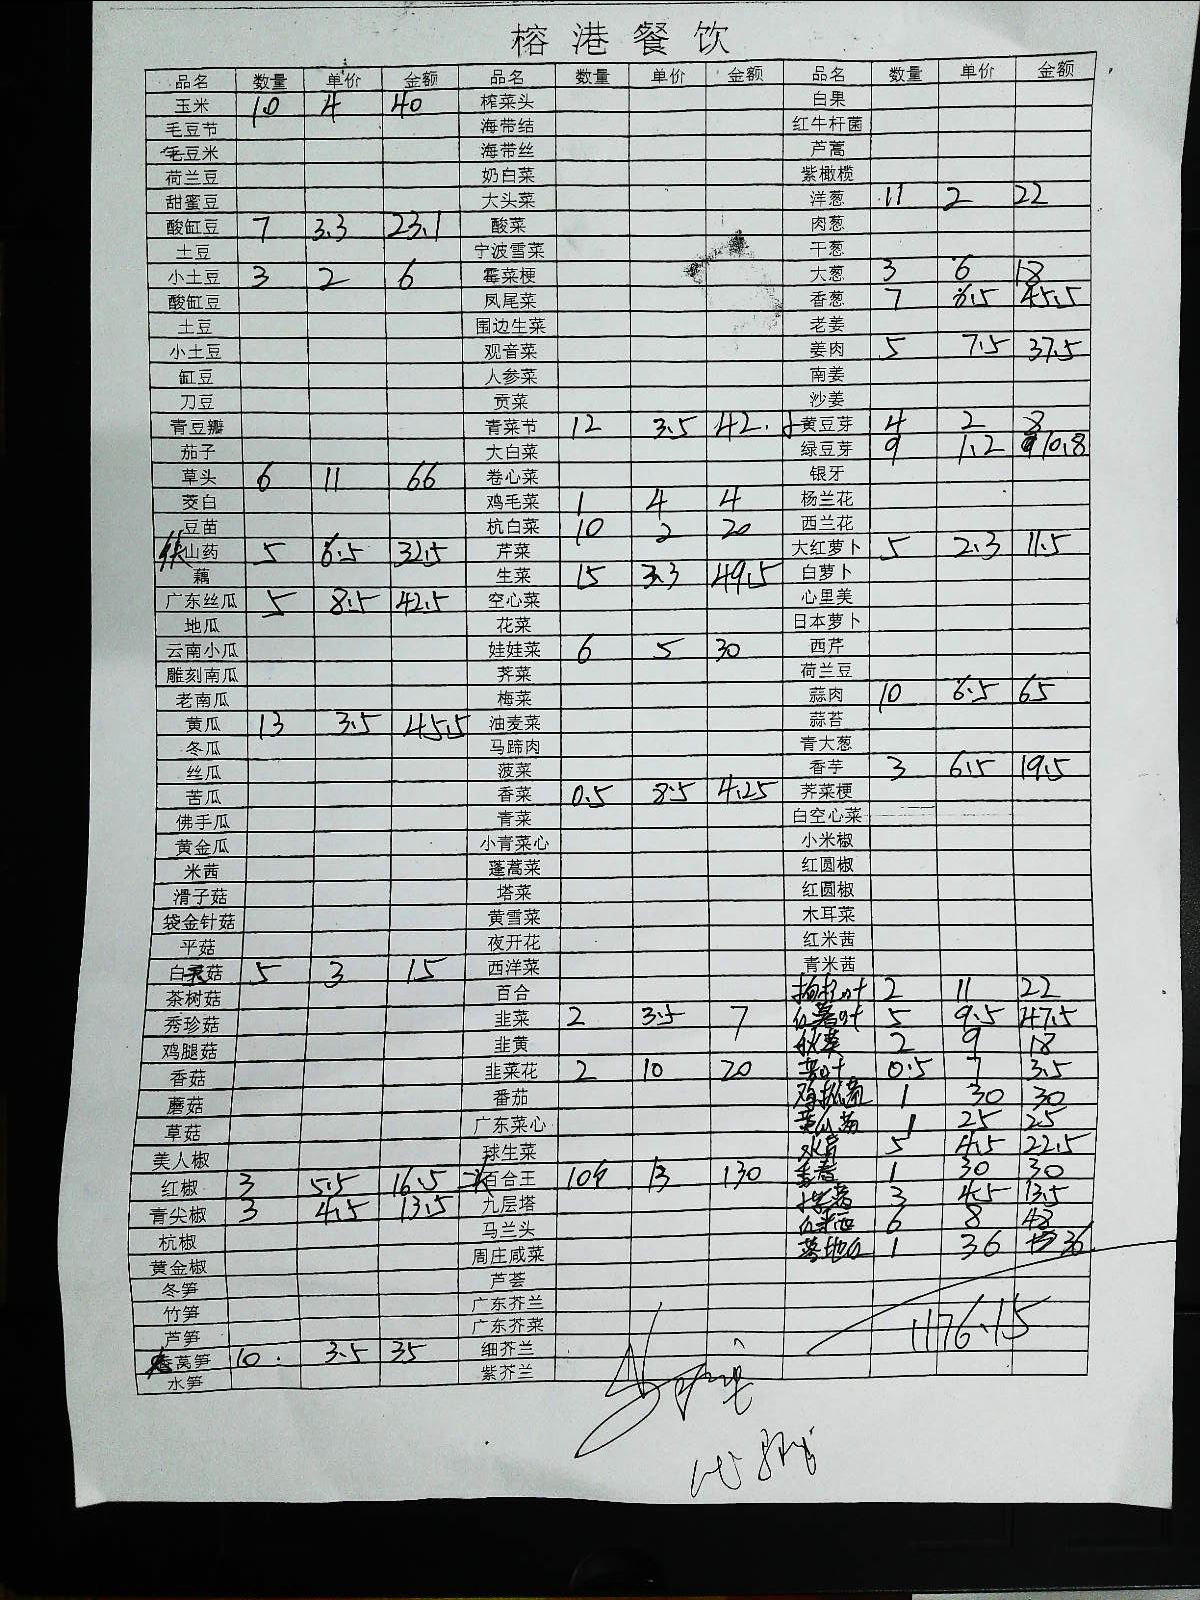 榕港餐饮
品名 数量 单价 金额 品名 数量 单价 金额 品名 数量 单价 金额
玉米 10 4 40 榨菜头 白果
毛豆节 海带结 红牛杆菌
毛豆米 海带丝 芦蒿
荷兰豆 奶白菜 紫橄榄
甜蜜豆 大头菜 洋葱 11 2 22
酸缸豆 7 3.3 23.1 酸菜 肉葱
土豆 宁波雪菜 干葱
小土豆 3 2 6 霉菜梗 大葱 3 6 18
酸缸豆 凤尾菜 香葱 7 6.5 45.5
土豆 围边生菜 老姜
小土豆 观音菜 姜肉 5 7.5 37.5
缸豆 人参菜 南姜
刀豆 贡菜 沙姜
青豆瓣 青菜节 12 3.5 42 黄豆芽 4 2 8
茄子 大白菜 绿豆芽 9 1.2 10.8
草头 6 11 66 卷心菜 银牙
茭白 鸡毛菜 1 4 4 杨兰花
豆苗 杭白菜 10 2 20 西兰花
铁山药 5 6.5 32.5 芹菜 大红萝卜 5 2.3 11.5
藕 生菜 15 3.3 49.5 白萝卜
广东丝瓜 5 8.5 42.5 空心菜 心里美
地瓜 花菜 日本萝卜
云南小瓜 娃娃菜 6 5 30 西芹
雕刻南瓜 荠菜 荷兰豆
老南瓜 梅菜 蒜肉 10 6.5 65
黄瓜 13 3.5 45.5 油麦菜 蒜苔
冬瓜 马蹄肉 青大葱
丝瓜 菠菜 香芋 3 6.5 19.5
苦瓜 香菜 0.5 8.5 4.25 荠菜梗
佛手瓜 青菜 白空心菜
黄金瓜 小青菜心 小米椒
米茜 蓬蒿菜 红圆椒
滑子菇 塔菜 红圆椒
袋金针菇 黄雪菜 木耳菜
平菇 夜开花 红米茜
白灵菇 5 3 15 西洋菜 青米茜
茶树菇 百合 枸杞叶 2 11 22
秀珍菇 韭菜 2 3.5 7 红薯叶 5 9.5 47.5
鸡腿菇 韭黄 秋葵 2 9 18
香菇 韭菜花 2 10 20 0.5 7 3.5
蘑菇 番茄 1 30 30
草菇 广东菜心 1 25 25
美人椒 球生菜 5 4.5 22.5
红椒 3 5.5 16.5 百合王 10个 13 130 1 30 30
青尖椒 3 4.5 13.5 九层塔 3 4.5 13.5
杭椒 马兰头 6 8 48
黄金椒 周庄咸菜 1 36 36
冬笋 芦荟
竹笋 广东芥兰
芦笋 广东芥菜 1176.15
莴笋 10 3.5 35 细芥兰
水笋 紫芥兰